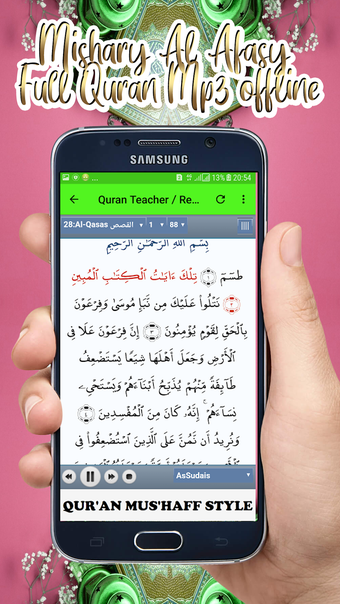 Mishary Al Afasy
Full Quran Mp3 offline
SAMSUNG
13% 20:54
Quran Teacher / Re...
28:Al-Qasas القصص 1 88
بِسْمِ اللَّهِ الرَّحْمَٰنِ الرَّحِيمِ
طسٓمٓ ۝١ تِلْكَ ءَايَٰتُ ٱلْكِتَٰبِ ٱلْمُبِينِ
۝٢ نَتْلُوا۟ عَلَيْكَ مِن نَّبَإِ مُوسَىٰ وَفِرْعَوْنَ
بِٱلْحَقِّ لِقَوْمٍ يُؤْمِنُونَ ۝٣ إِنَّ فِرْعَوْنَ عَلَا فِى
ٱلْأَرْضِ وَجَعَلَ أَهْلَهَا شِيَعًا يَسْتَضْعِفُ
طَآئِفَةً مِّنْهُمْ يُذَبِّحُ أَبْنَآءَهُمْ وَيَسْتَحْىِۦ
نِسَآءَهُمْ ۚ إِنَّهُۥ كَانَ مِنَ ٱلْمُفْسِدِينَ ۝٤
وَنُرِيدُ أَن نَّمُنَّ عَلَى ٱلَّذِينَ ٱسْتُضْعِفُوا۟ فِى
AsSudais
QUR'AN MUS'HAFF STYLE